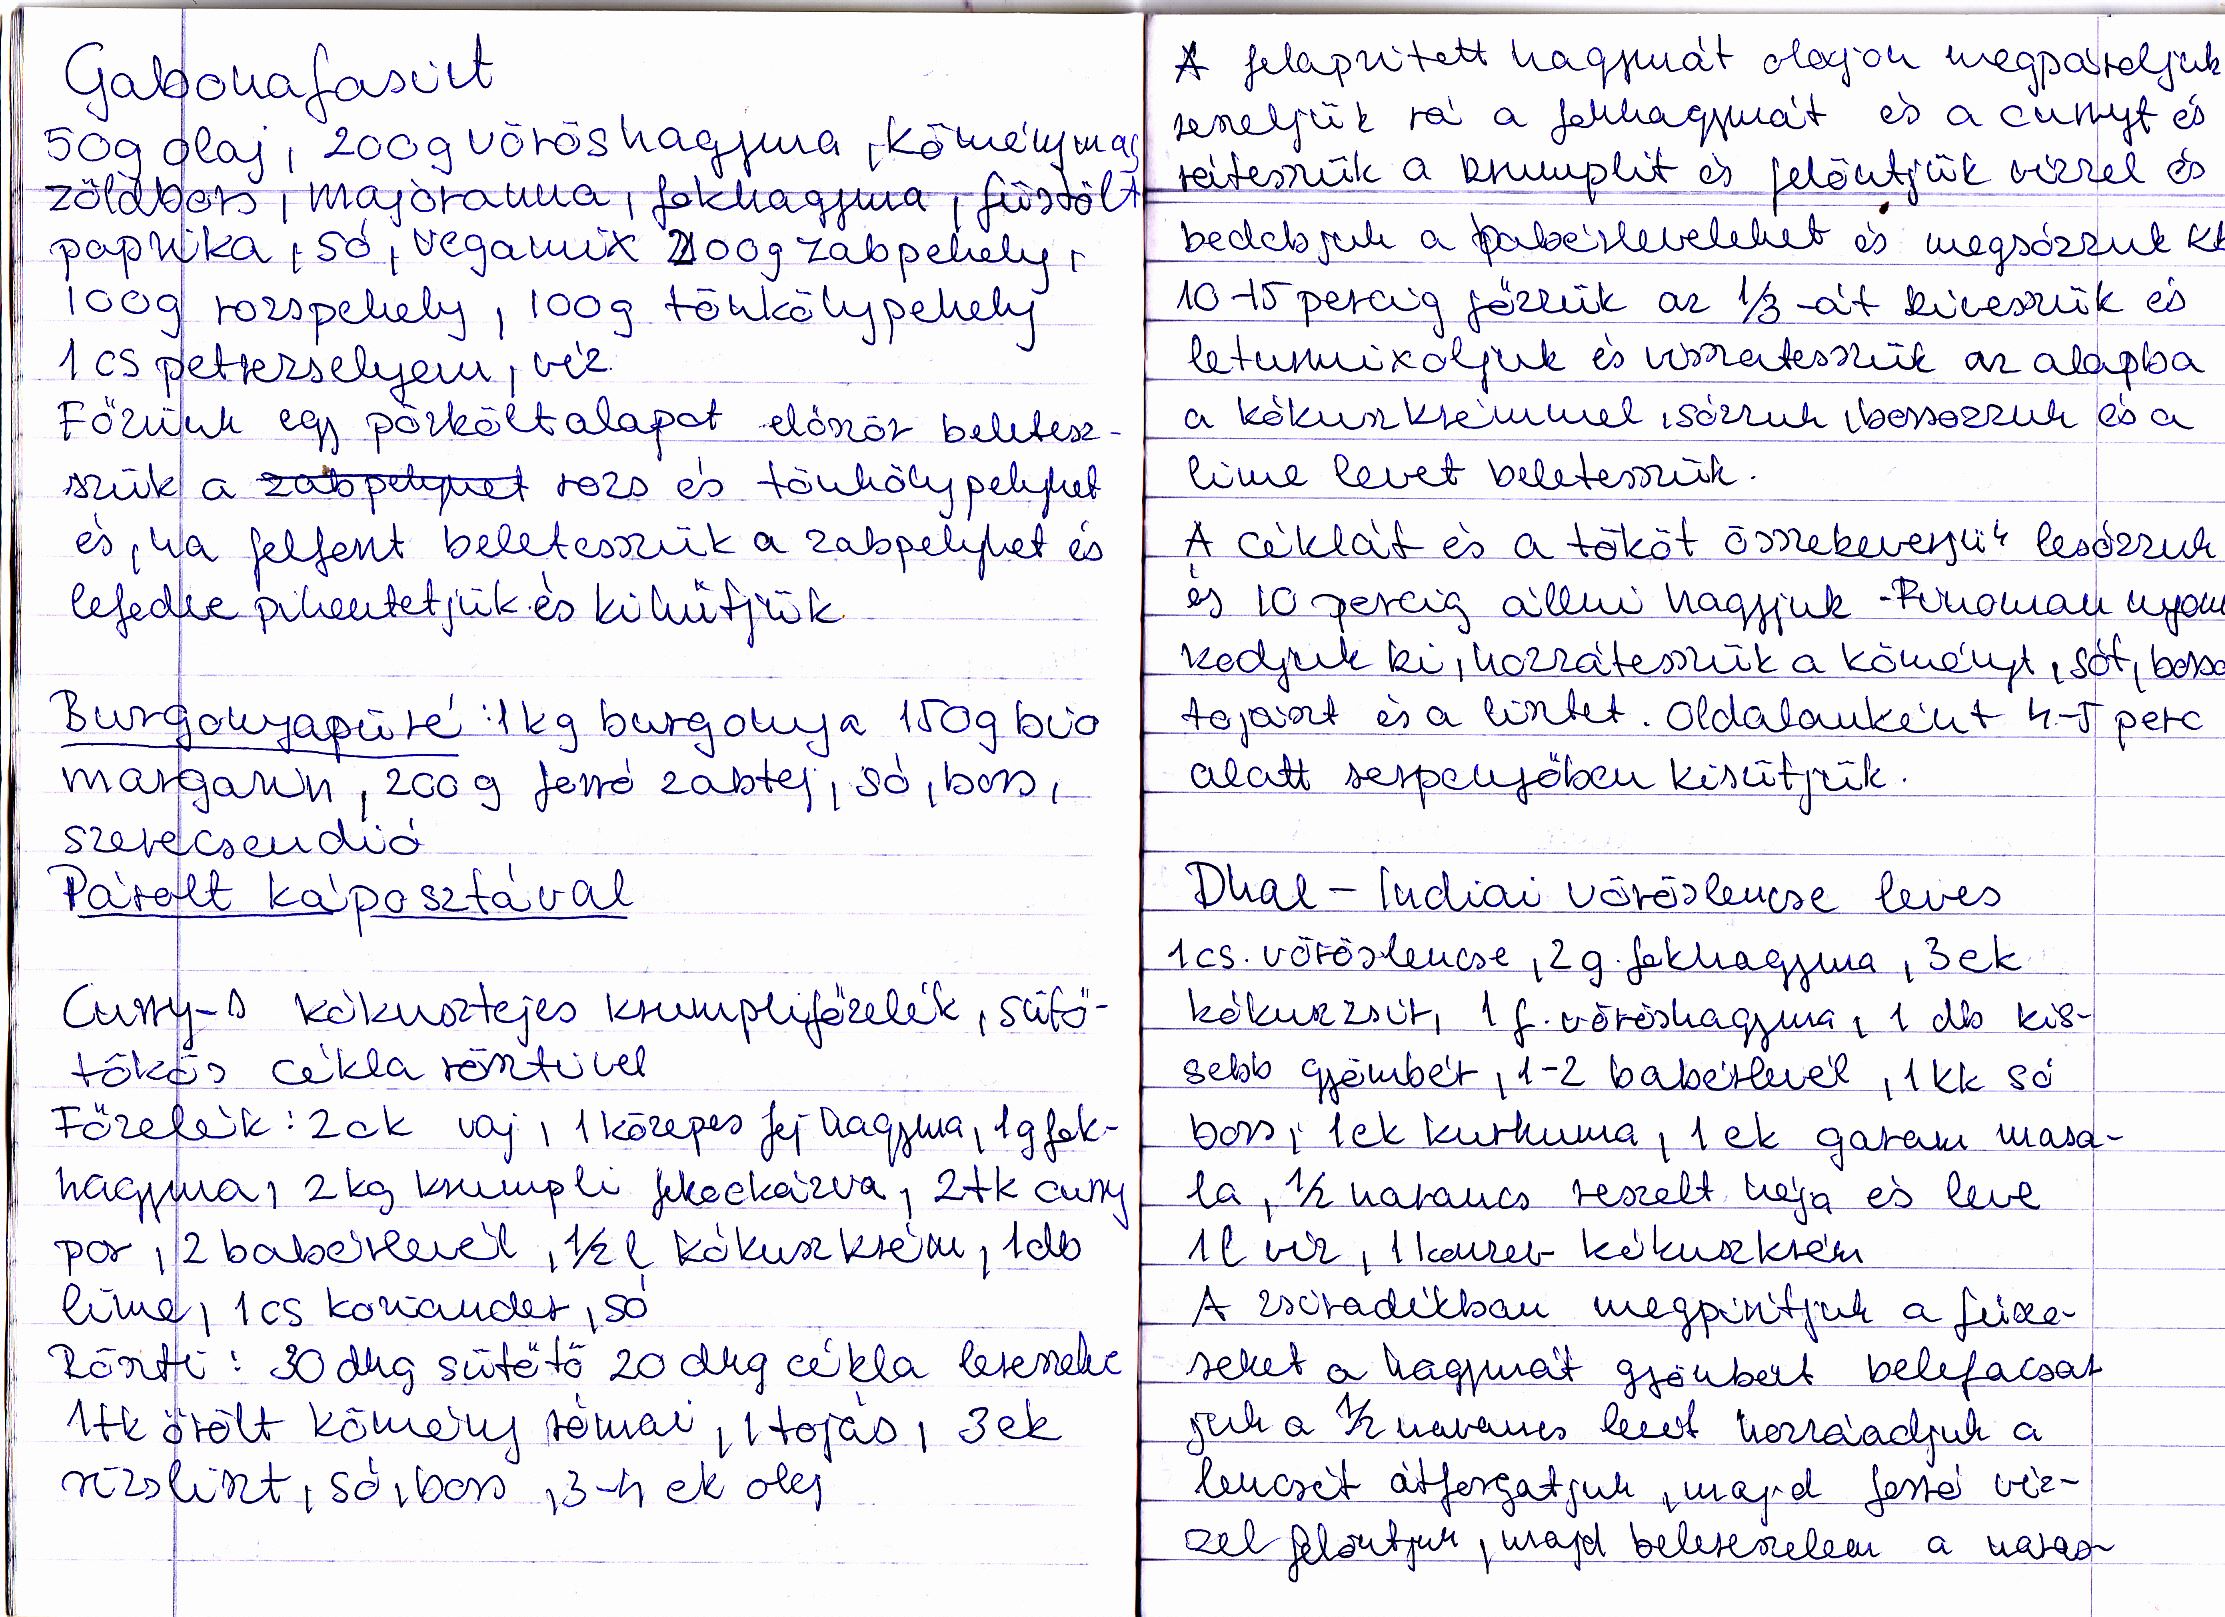 Gabonafasirt
50g olaj, 200g vöröshagyma, köménymag
zöldbors, majoranna, fokhagyma, füstölt
paprika, só, vegamix 200g zabpehely,
100g rozspehely, 100g tönkölypehely
1 cs petrezselyem, víz
Főzünk egy pörköltalapot először beletesz-
szük a zabpelyhet rozs és tönkölypelyhet
és, ha felfent beletesszük a zabpelyhet és
lefedve pihentetjük és kihűtjük
Burgonyapüré: 1kg burgonya 150g bio
margarin, 200g forró zabtej, só, bors,
szerecsendió
Párolt káposztával
Curry-s kókusztejes krumplifőzelék, sütő-
tökös cékla rösztivel
Főzelék: 2ek vaj, 1 közepes fej hagyma, 1g fok-
hagyma, 2kg krumpli felkockázva, 2tk curry
por, 2 babérlevél, 1/2 l kókuszkrém, 1db
lime, 1cs koriander, só
Röszti: 30 dkg sütőtö 20 dkg cékla lereszelve
1tk őrölt kömény római, 1 tojás, 3ek
rizsliszt, só, bors, 3-4 ek olaj
A felapritett hagymát olajon megpároljuk
reszeljük rá a fokhagymát és a curryt és
rátesszük a krumplit és felöntjük vizzel és
bedobjuk a babérleveleket és megsózzuk kb
10-15 percig főzzük az 1/3-át kivesszük és
leturmixoljuk és visszatesszük az alapba
a kókuszkrémmel, sózzuk, borsozzuk és a
lime levet beletesszük.
A céklát és a tököt összekeverjük lesózzuk
és 10 percig állni hagyjuk. Finoman nyom
kodjuk ki, hozzátesszük a köményt, sót, borso
tojászt és a lisztet. Oldalanként 4-5 perc
alatt serpenyőben kisütjük.
Dhal - Indiai vöröslencse leves
1cs. vöröslencse, 2g. fokhagyma, 3ek
kókuszzsír, 1 f. vöröshagyma, 1 db kis-
sebb gyömbér, 1-2 babérlevél, 1kk só
bors, 1ek kurkuma, 1 ek garam masa-
la, 1/2 narancs reszelt héja és leve
1l víz, 1 konzerv kókuszkrém
A zsiradékban megpiritjuk a fűsze-
reket a hagymát gyömbért belefacsar
juk a 1/2 narancs levét hozzáadjuk a
lencsét átforgatjuk, majd forró víz-
zel felöntjük, majd belereszelem a naran-